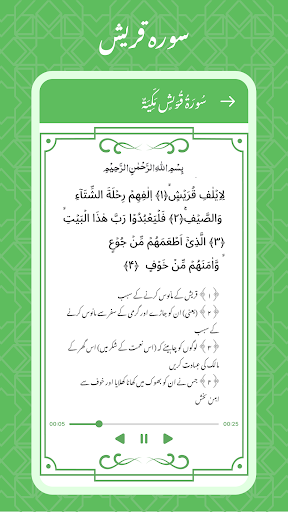 سورہ قریش
سُورَةُ قُرَيْشٍ مَكِّيَّةٌ
بِسْمِ اللهِ الرَّحْمٰنِ الرَّحِيْمِ
لِاِيْلٰفِ قُرَيْشٍۙ﴿۱﴾ اٖلٰفِهِمْ رِحْلَةَ الشِّتَآءِ
وَالصَّيْفِۚ﴿۲﴾ فَلْيَعْبُدُوْا رَبَّ هٰذَا الْبَيْتِۙ
﴿۳﴾ الَّذِيْۤ اَطْعَمَهُمْ مِّنْ جُوْعٍ
وَّاٰمَنَهُمْ مِّنْ خَوْفٍ ﴿۴﴾
﴿۱﴾ قریش کے مانوس کرنے کے سبب
﴿۲﴾ (یعنی) ان کو جاڑے اور گرمی کے سفر سے مانوس کرنے
کے سبب
﴿۳﴾ لوگوں کو چاہیئے کہ (اس نعمت کے شکر میں) اس گھر کے
مالک کی عبادت کریں
﴿۴﴾ جس نے ان کو بھوک میں کھانا کھلایا اور خوف سے
امن بخشا
00:05 00:25